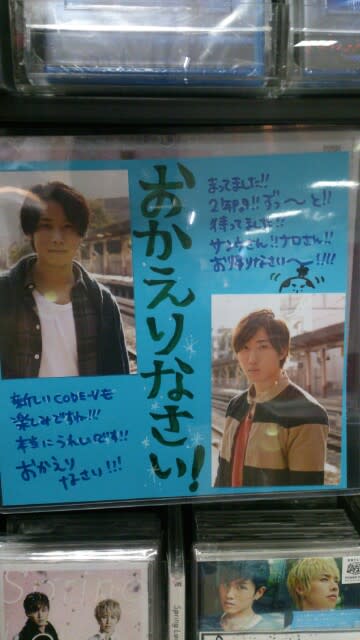 おかえりなさい!
まってました!!
2年間!!ずっ〜と!!
待ってました!!
サンウさん!!ナロさん!!
お帰りなさい〜!!!!
新しいCODE-Vも
楽しみですね!!!
本当にうれしいです!!
おかえり
なさい!!!
Spring